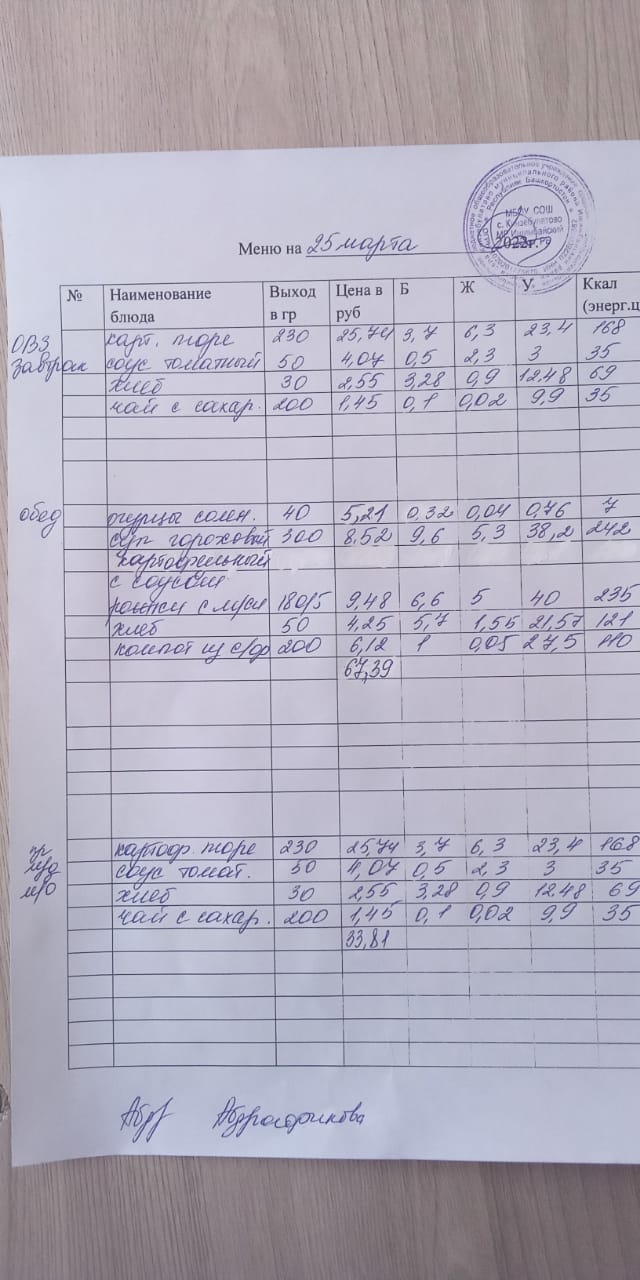 МБОУ СОШ
с. Кинзебулатово
МР Ишимбайский
2022г.
Меню на 25 марта
№ Наименование блюда Выход в гр Цена в руб Б Ж У Ккал (энерг.ц
ОВЗ карт. пюре 230 25,74 3,7 6,3 23,4 168
завтрак соус томатный 50 4,07 0,5 2,3 3 35
хлеб 30 2,55 3,28 0,9 12.48 69
чай с сахар. 200 1,45 0,1 0,02 9,9 35
обед огурцы солен. 40 5,21 0,32 0,04 0,76 7
суп гороховый 300 8.52 9,6 5,3 38,2 242
картофельный
с соусом
180/5 9,48 6,6 5 40 235
хлеб 50 4,25 5,7 1,55 21,57 121
компот из с/фр 200 6,12 1 0,05 27,5 110
67,39
картоф. пюре 230 25,74 3,7 6,3 23,4 168
соус томат. 50 4,07 0,5 2,3 3 35
хлеб 30 2,55 3,28 0,9 12.48 69
чай с сахар. 200 1,45 0,1 0,02 9,9 35
33,81